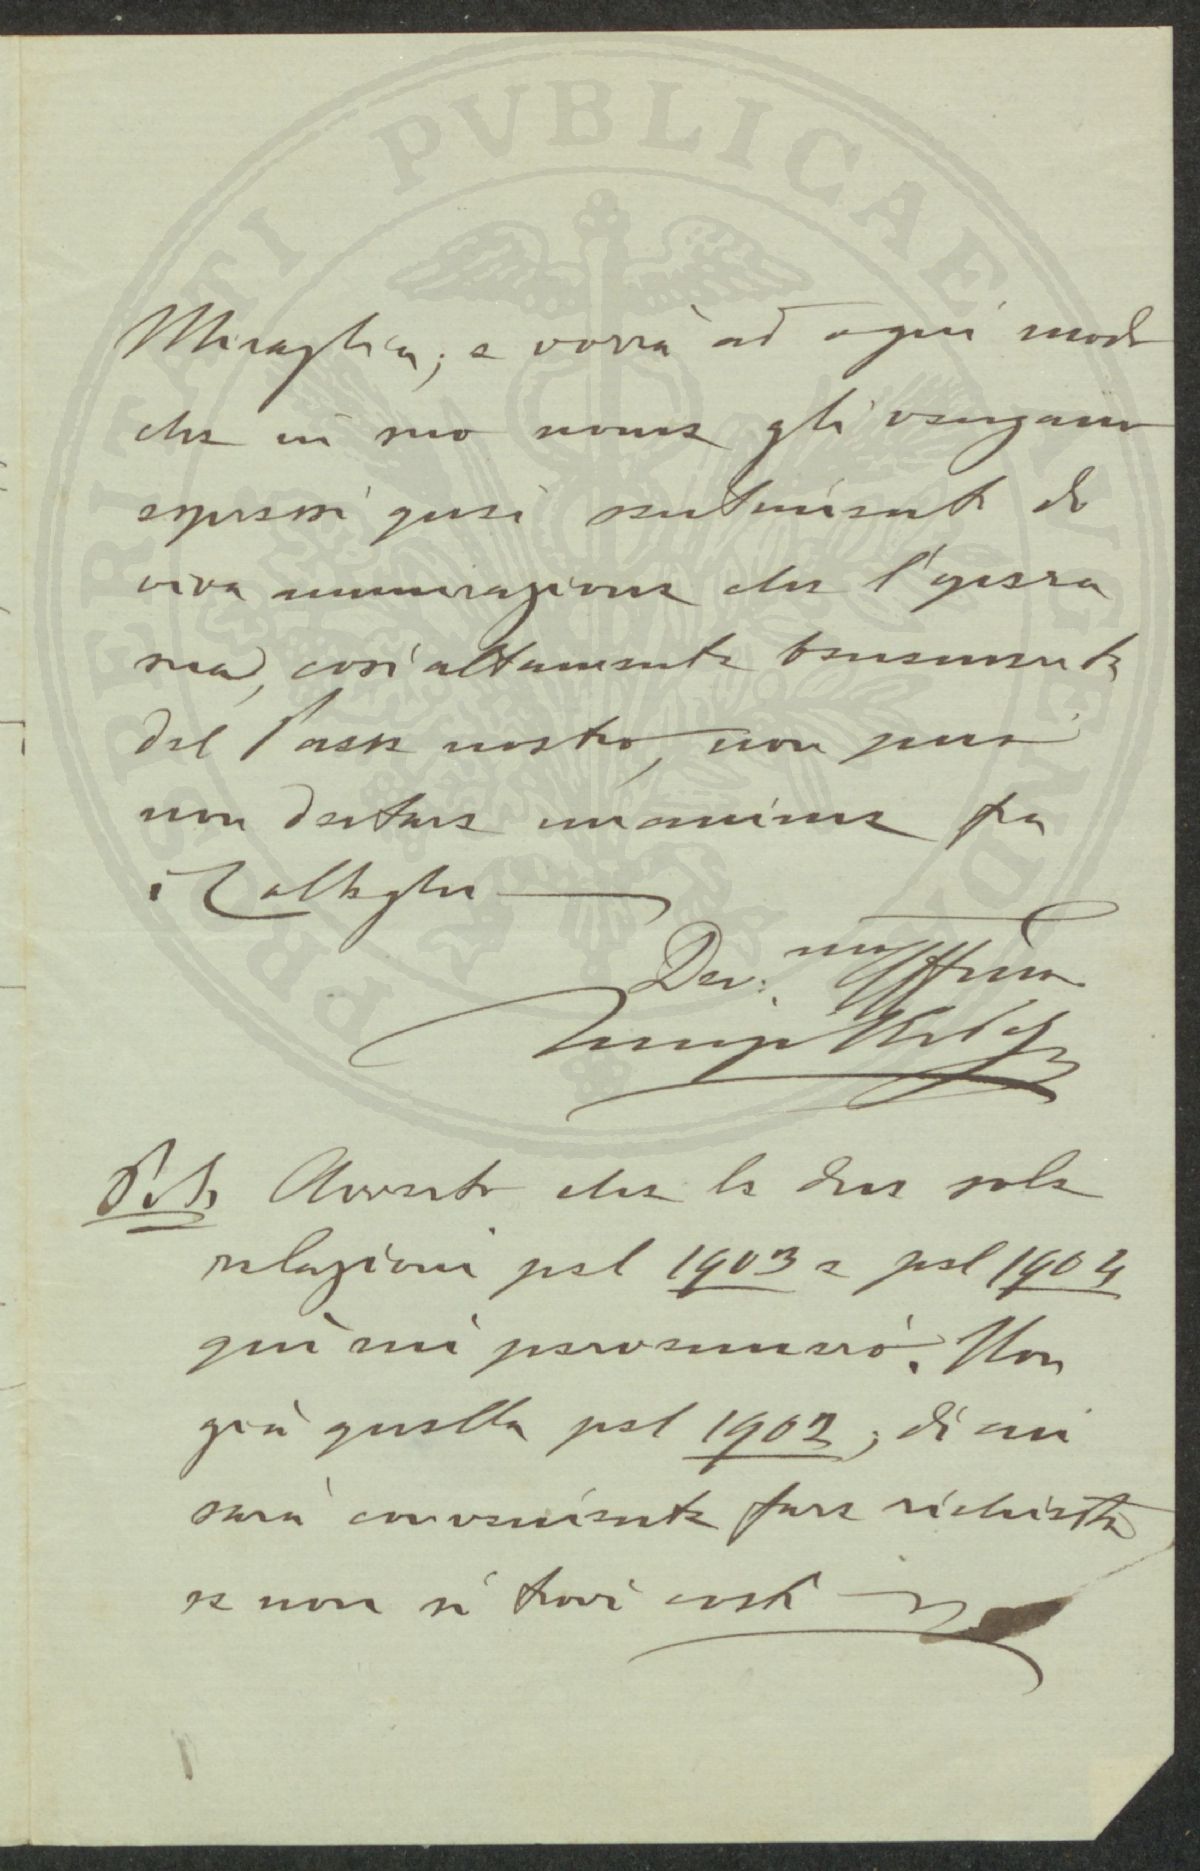 PROSPERITATI PVBLICAE AVGENDAE
Miraglia; e vorrà ad ogni modo
che in suo nome gli vengano
espressi quei sentimenti di
viva ammirazione che l'opera
sua, così altamente benemerita
del Paese nostro, non può
non destare unanime fra
i Colleghi
Dev.mo Aff.mo
Luigi
P.S. Avverto che le due sole
relazioni pel 1903 e pel 1904
qui mi pervennero. Non
già quella pel 1902; di cui
sarà conveniente fare richiesta
se non si trovi costì